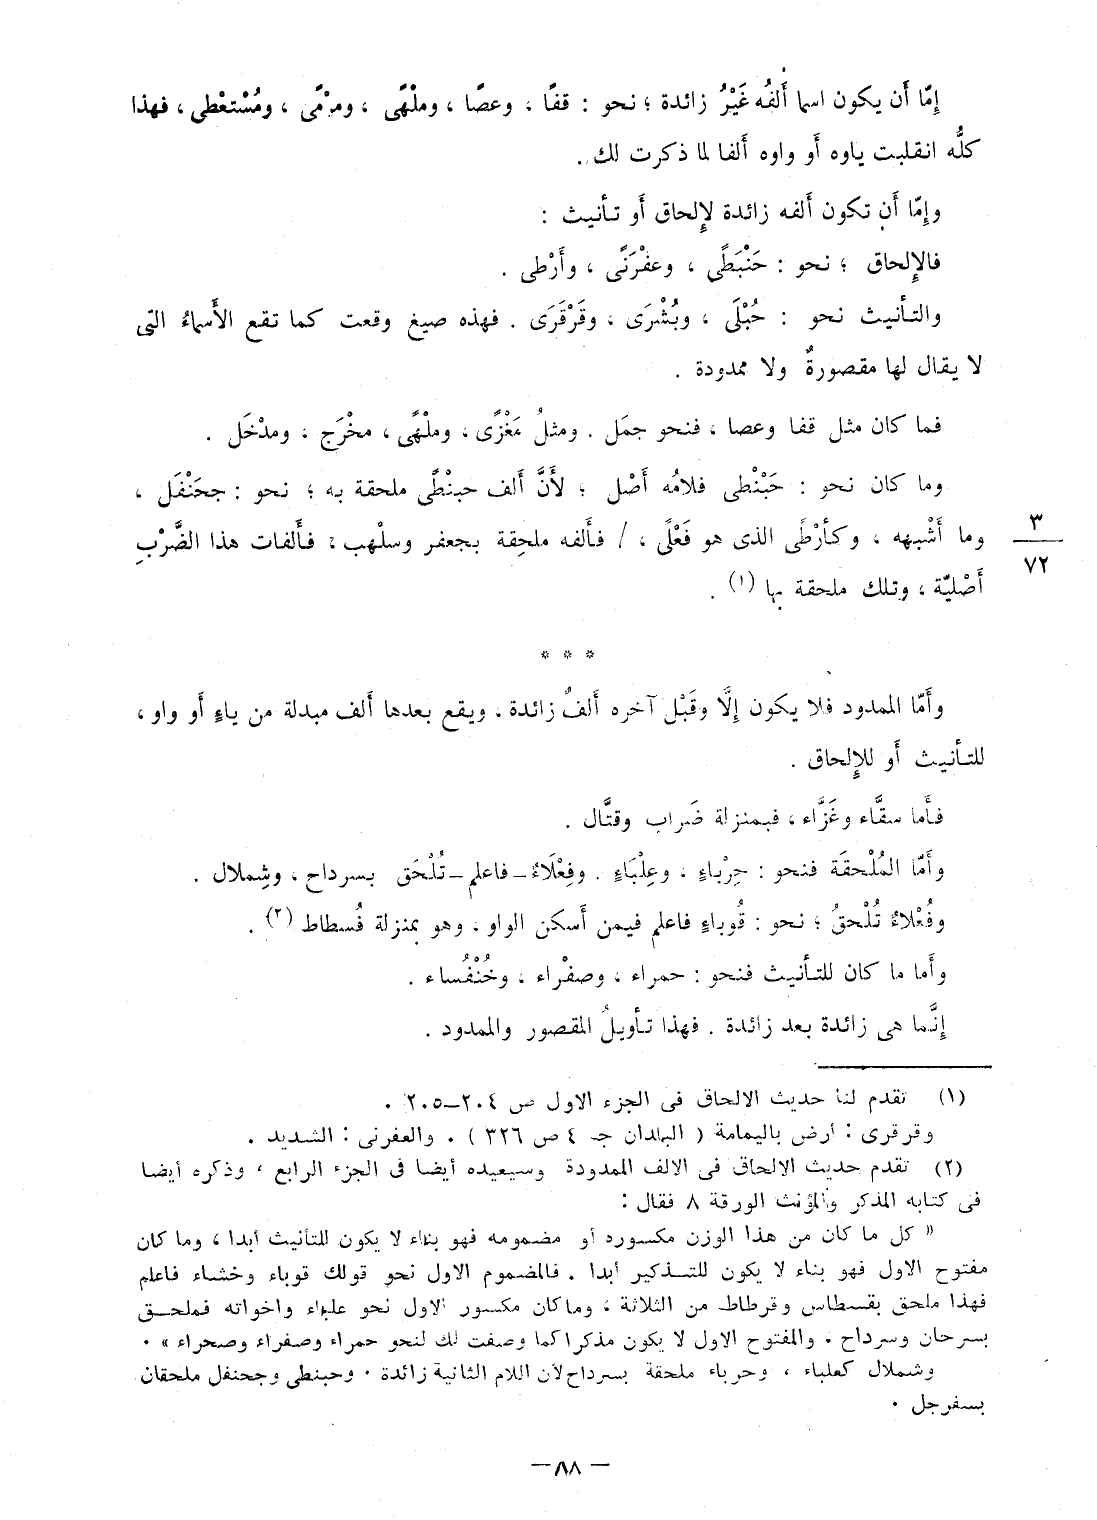 إمّا أَن يكون اسما أَلفُه غَيْرُ زائدة ؛ نحو : قفًا ، وعصًا ، وملْهًى ، ومرْمًى ، ومُسْتعْطى ، فهذا
كلُّه انقلبت ياوه أَو واوه أَلفا لما ذكرت لك .
وإِمّا أَن تكون أَلفه زائدة لإِلحاق أَو تأنيث :
فالإِلحاق ؛ نحو : حَنْبَطًى ، وعفْرَنًى ، وأَرْطى .
والتأنيث نحو : حُبْلَى ، وبُشْرَى ، وقَرْقَرَى . فهذه صيغ وقعت كما تقع الأَسماءُ التى
لا يقال لها مقصورةٌ ولا ممدودة .
فما كان مثل قفا وعصا ، فنحو جمَل . ومثلُ مَغْزًى ، وملْهًى ، مخْرَج ، ومدْخَل .
وما كان نحو : حَبَنْطى فلامُه أَصْل ؛ لأَنَّ أَلف حبنْطًى ملحقة به ؛ نحو : جحَنْفَل ،
وما أَشْبهه ، وكأَرْطًى الذى هو فَعْلًى ، / فأَلفه ملحِقة بجعفر وسلْهب : فأَلفات هذا الضَّرْبِ
٣
٧٢
أَصْليّة ، وتلك ملحقة بها (١) .
* * *
وأَمّا الممدود فلا يكون إِلَّا وقَبْل آخره أَلفٌ زائدة . ويقع بعدها أَلف مبدلة من ياءٍ أَو واو ،
للتأنيث أَو للإِلحاق .
فأَما سقَّاء وغَزَّاء ، فبمنزلة ضَراب وقتَّال .
وأَمّا المُلْحقَة فنحو : حِرْباءٍ ، وعِلْبَاءٍ . وفِعْلَاءٌ – فاعلم – تُلْحَق بسرداح ، وشِملال .
وفُعْلاءٌ تُلْحقُ ؛ نحو : قُوباءٍ فاعلم فيمن أَسكن الواو ، وهو بمنزلة فُسطاط (٢) .
وأَما ما كان للتأنيث فنحو : حمراء ، وصفْراء ، وخُنْفُساء .
إِنَّما هى زائدة بعد زائدة . فهذا تأويلُ المقصور والممدود .
(١) تقدم لنا حديث الالحاق فى الجزء الاول ص ٢٠٤–٢٠٥ .
وقرقرى : أرض باليمامة ( البلدان جـ ٤ ص ٣٢٦ ) . والعفرنى : الشديد .
(٢) تقدم حديث الالحاق فى الالف الممدودة وسيعيده أيضا فى الجزء الرابع ، وذكره أيضا
فى كتابه المذكر والمؤنث الورقة ٨ فقال :
« كل ما كان من هذا الوزن مكسوره أو مضمومه فهو بناء لا يكون للتأنيث أبدا ، وما كان
مفتوح الاول فهو بناء لا يكون للتذكير أبدا . فالمضموم الاول نحو قولك قوباء وخشاء فاعلم
فهذا ملحق بقسطاس وقرطاط من الثلاثة ، وما كان مكسور الاول نحو علباء واخواته فملحق
بسرحان وسرداح . والمفتوح الاول لا يكون مذكرا كما وصفت لك لنحو حمراء وصفراء وصحراء » .
وشملال كعلباء ، وحرباء ملحقة بسرداح لأن اللام الثانية زائدة . وحبنطى وجحنفل ملحقان
بسفرجل .
– ٨٨ –